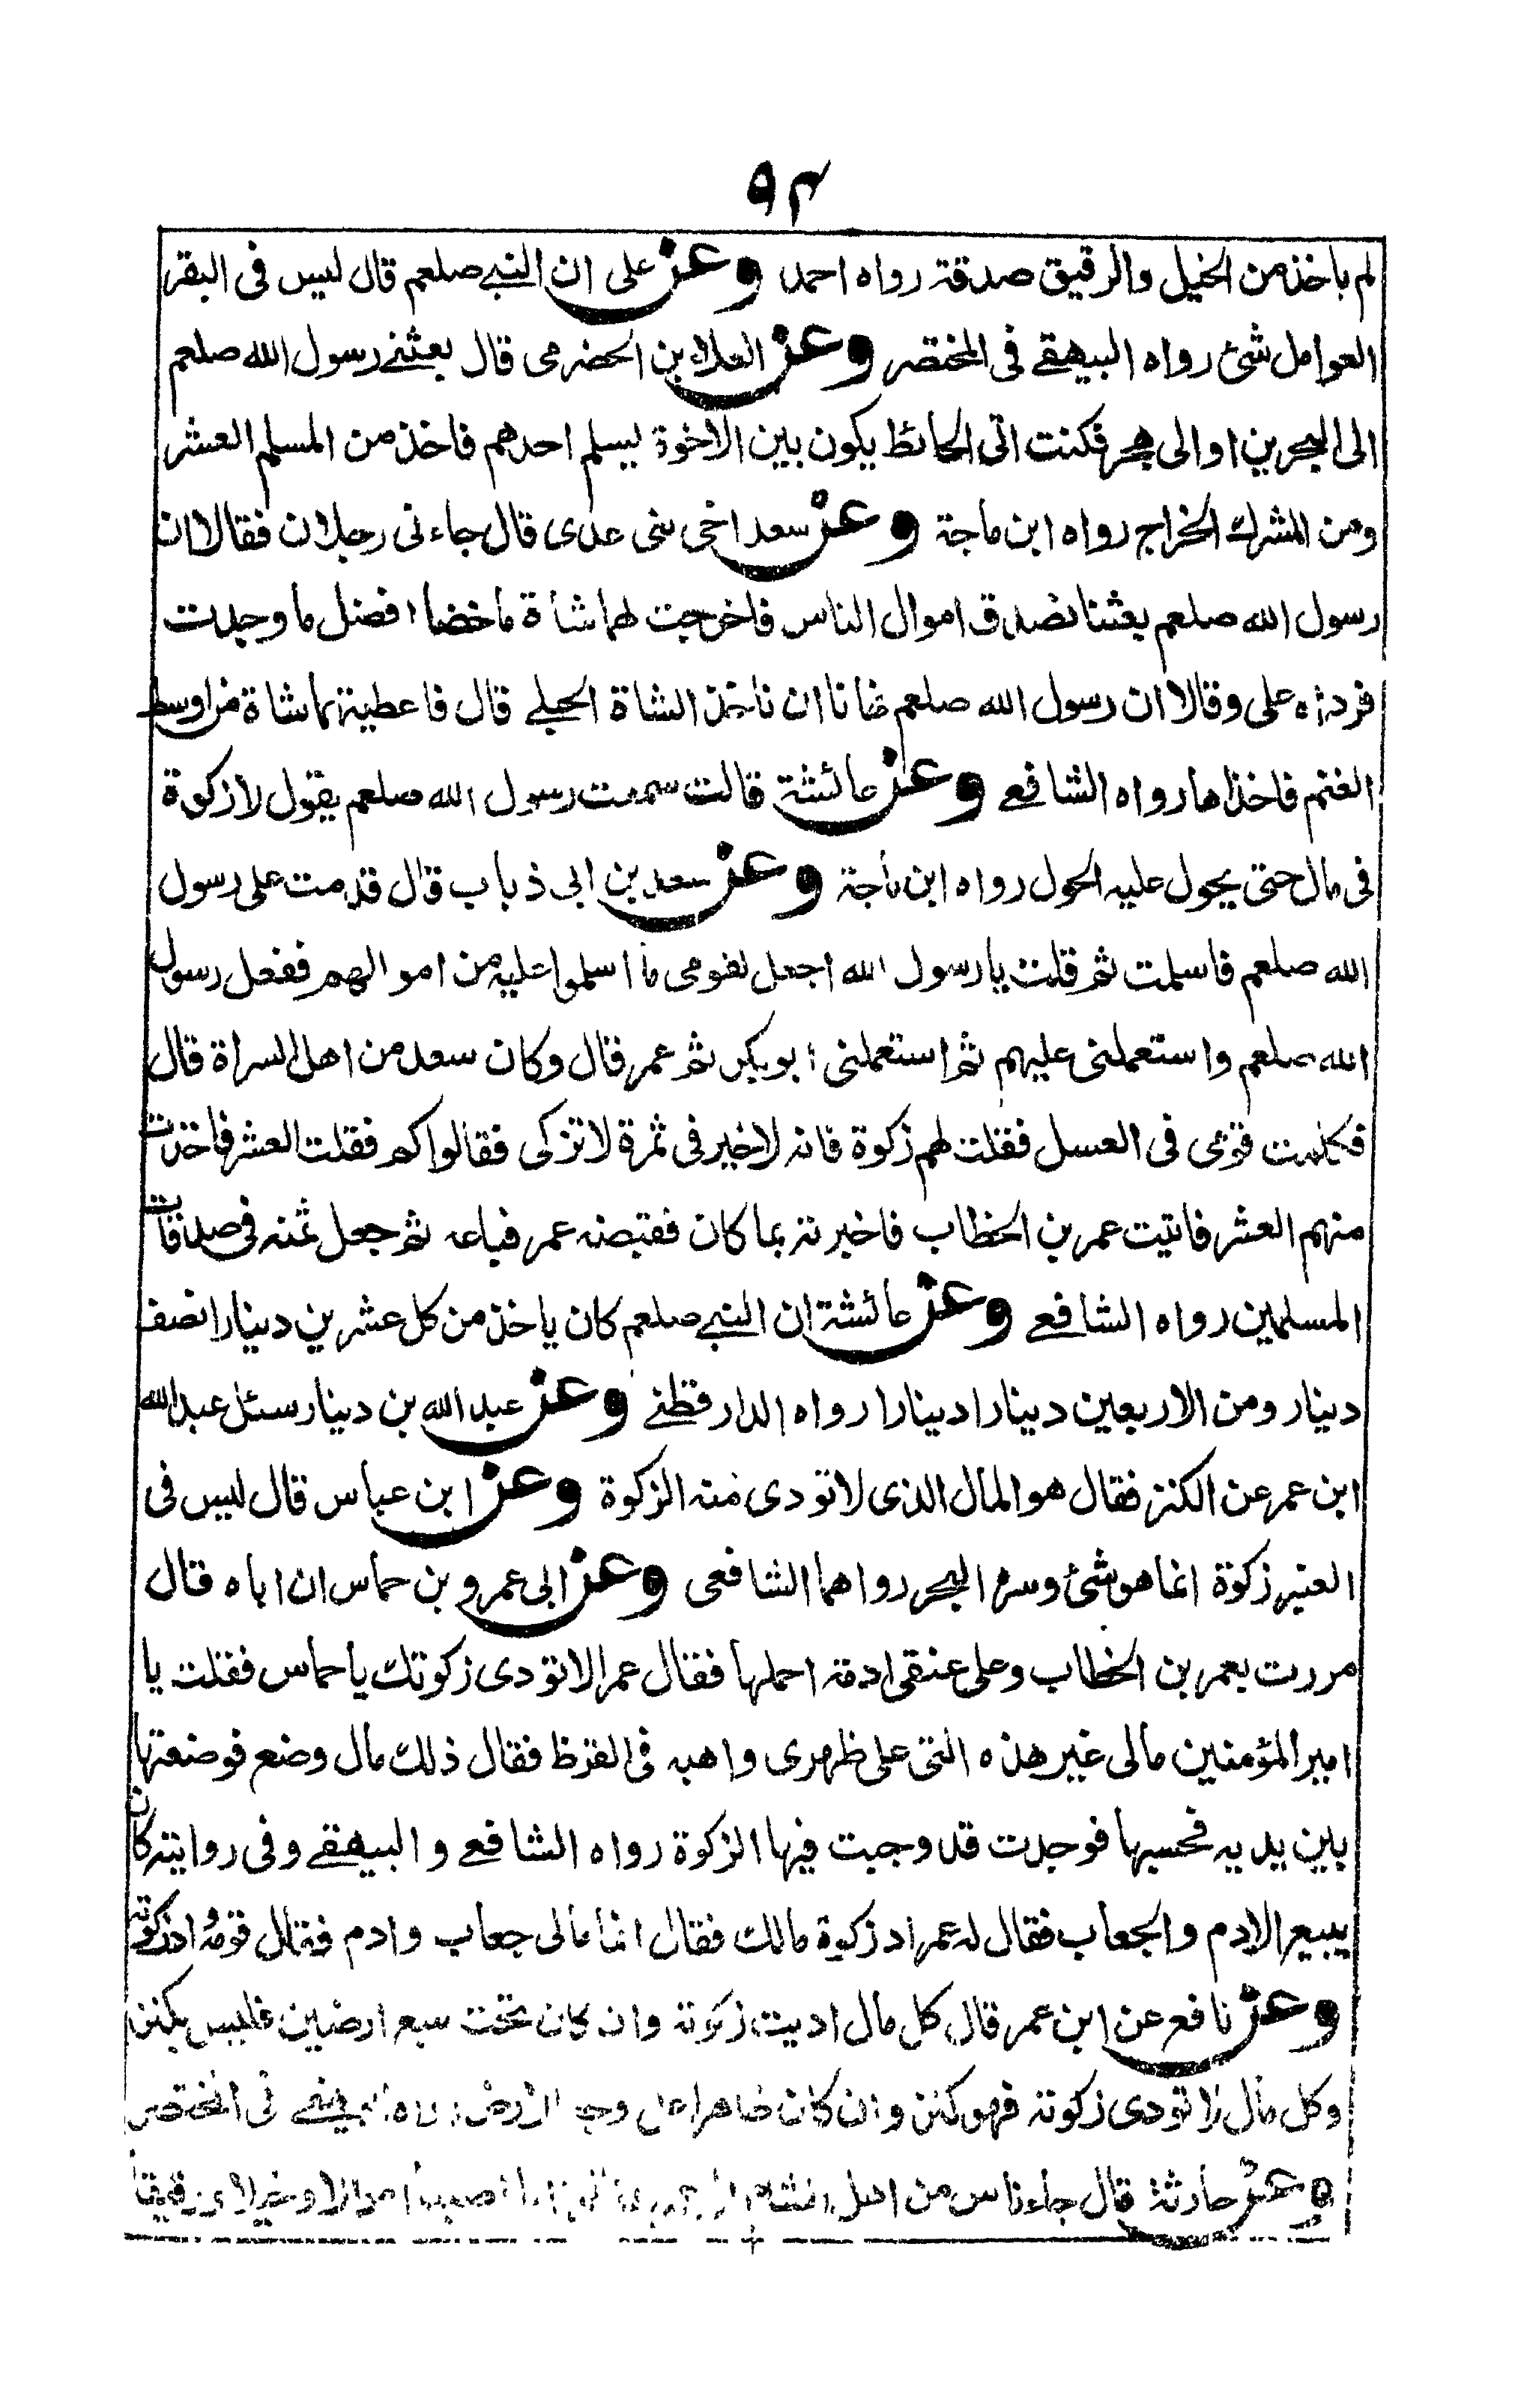 ٩٣
لم ياخذ من الخيل والرقيق صدقة رواه احمد وعن على ان النبي صلعم قال ليس فى البقر
العوامل شئ رواه البيهقي فى المختصر وعن العلاء بن الحضرمى قال بعثني رسول الله صلعم
الى البحرين او الى هجر فكنت اتى الحائط يكون بين الاخوة يسلم احدهم فاخذ من المسلم العشر
ومن المشرك الخراج رواه ابن ماجة وعن سعد اخى بنى عدى قال جاءنى رجلان فقالا ان
رسول الله صلعم بعثنا نصدق اموال الناس فاخرجت لهما شاة ماخضا افضل ما وجدت
فرداه على وقالا ان رسول الله صلعم نهانا ان ناخذ الشاة الحبلے قال فاعطيتهما شاة من اوسط
الغنم فاخذاها رواه الشافعے وعن عائشة قالت سمعت رسول الله صلعم يقول لا زكوة
فى مال حتى يحول عليه الحول رواه ابن ماجة وعن سعد بن ابى ذباب قال قدمت على رسول
الله صلعم فاسلمت ثم قلت يا رسول الله اجعل لقومى ما اسلموا عليه من اموالهم ففعل رسول
الله صلعم واستعملنى عليهم ثم استعملنى ابو بكر ثم عمر قال وكان سعد من اهل السراة قال
فكلمت قومى فى العسل فقلت لهم زكوة فانه لا خير فى ثمرة لا تزكى فقالوا كم فقلت العشر فاخذت
منهم العشر فاتيت عمر بن الخطاب فاخبرته بما كان فقبضه عمر فباعه ثم جعل ثمنه فى صدقات
المسلمين رواه الشافعے وعن عائشة ان النبي صلعم كان ياخذ من كل عشرين دينارا نصف
دينار ومن الاربعين دينارا دينارا رواه الدارقطنے وعن عبد الله بن دينار سئل عبد الله
ابن عمر عن الكنز فقال هو المال الذى لا تودى منه الزكوة وعن ابن عباس قال ليس فى
العنبر زكوة انما هو شئ دسره البحر رواهما الشافعى وعن ابى عمرو بن حماس ان اباه قال
مررت بعمر بن الخطاب وعلى عنقى ادمة احملها فقال عمر الا تودى زكوتك يا حماس فقلت يا
امير المؤمنين مالى غير هذه التى على ظهرى واهبه فى القرظ فقال ذلك مال وضع فوضعتها
بين يديه فحسبها فوجدت قد وجبت فيها الزكوة رواه الشافعے والبيهقے وفى رواية كان
يبيع الادم والجعاب فقال له عمر اد زكوة مالك فقال انما مالى جعاب وادم فقال قومه اد زكوته
وعن نافع عن ابن عمر قال كل مال اديت زكوته وان كان تحت سبع ارضين فليس بكنز
وكل مال لا تودى زكوته فهو كنز وان كان ظاهرا على وجه الارض رواه البيهقے فى المختصر
وعن حارثة قال جاء ناس من اهل الشام اصبنا اموالا وخيلا ورقيقا